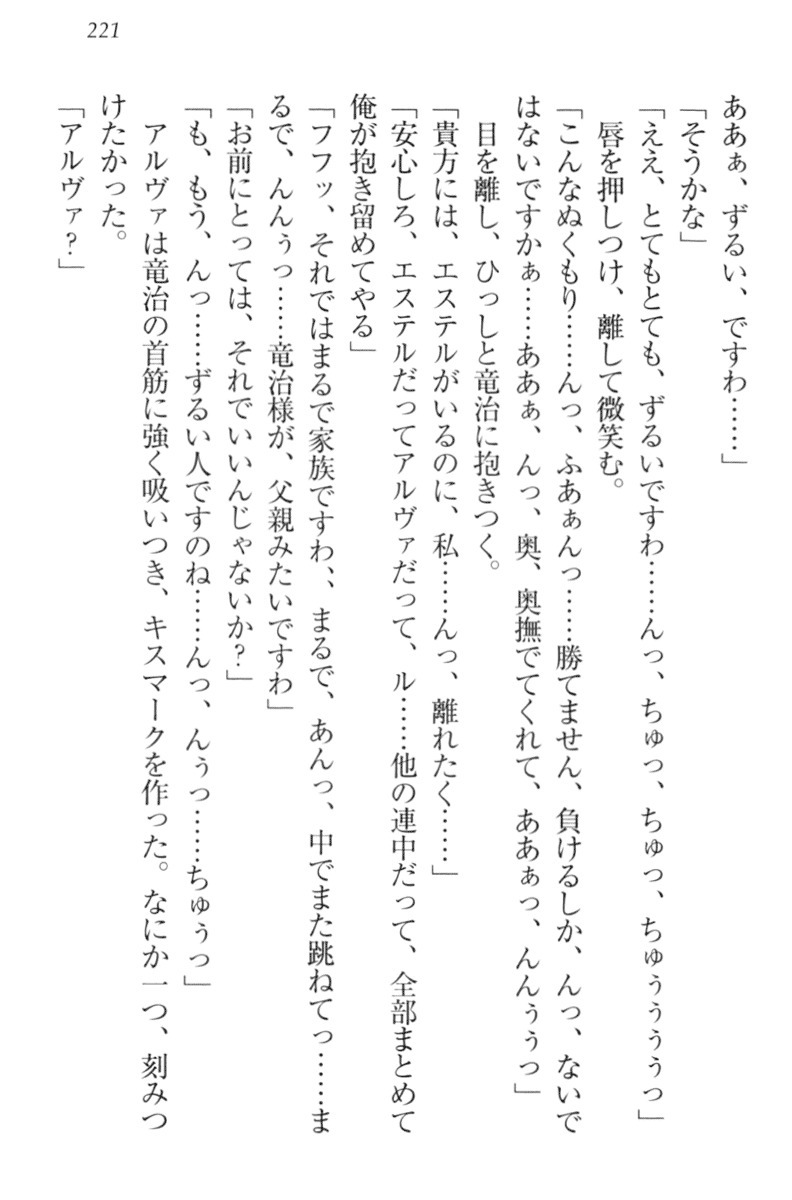 221
ああぁ、ずるい、ですわ……」
「そうかな」
「ええ、とてもとても、ずるいですわ……んっ、ちゅっ、ちゅっ、ちゅぅぅぅぅっ」
唇を押しつけ、離して微笑む。
「こんなぬくもり……んっ、ふあぁんっ……勝てません、負けるしか、んっ、ないで
はないですかぁ……ああぁ、んっ、奥、奥撫でてくれて、ああぁっ、んんぅぅっ」
目を離し、ひっしと竜治に抱きつく。
「貴方には、エステルがいるのに、私……んっ、離れたく……」
「安心しろ、エステルだってアルヴァだって、ル……他の連中だって、全部まとめて
俺が抱き留めてやる」
「フフッ、それではまるで家族ですわ、、まるで、あんっ、中でまた跳ねてっ……ま
るで、んんぅっ……竜治様が、父親みたいですわ」
「お前にとっては、それでいいんじゃないか？」
「も、もう、んっ……ずるい人ですのね……んっ、んぅっ……ちゅぅっ」
アルヴァは竜治の首筋に強く吸いつき、キスマークを作った。なにか一つ、刻みつ
けたかった。
「アルヴァ？」